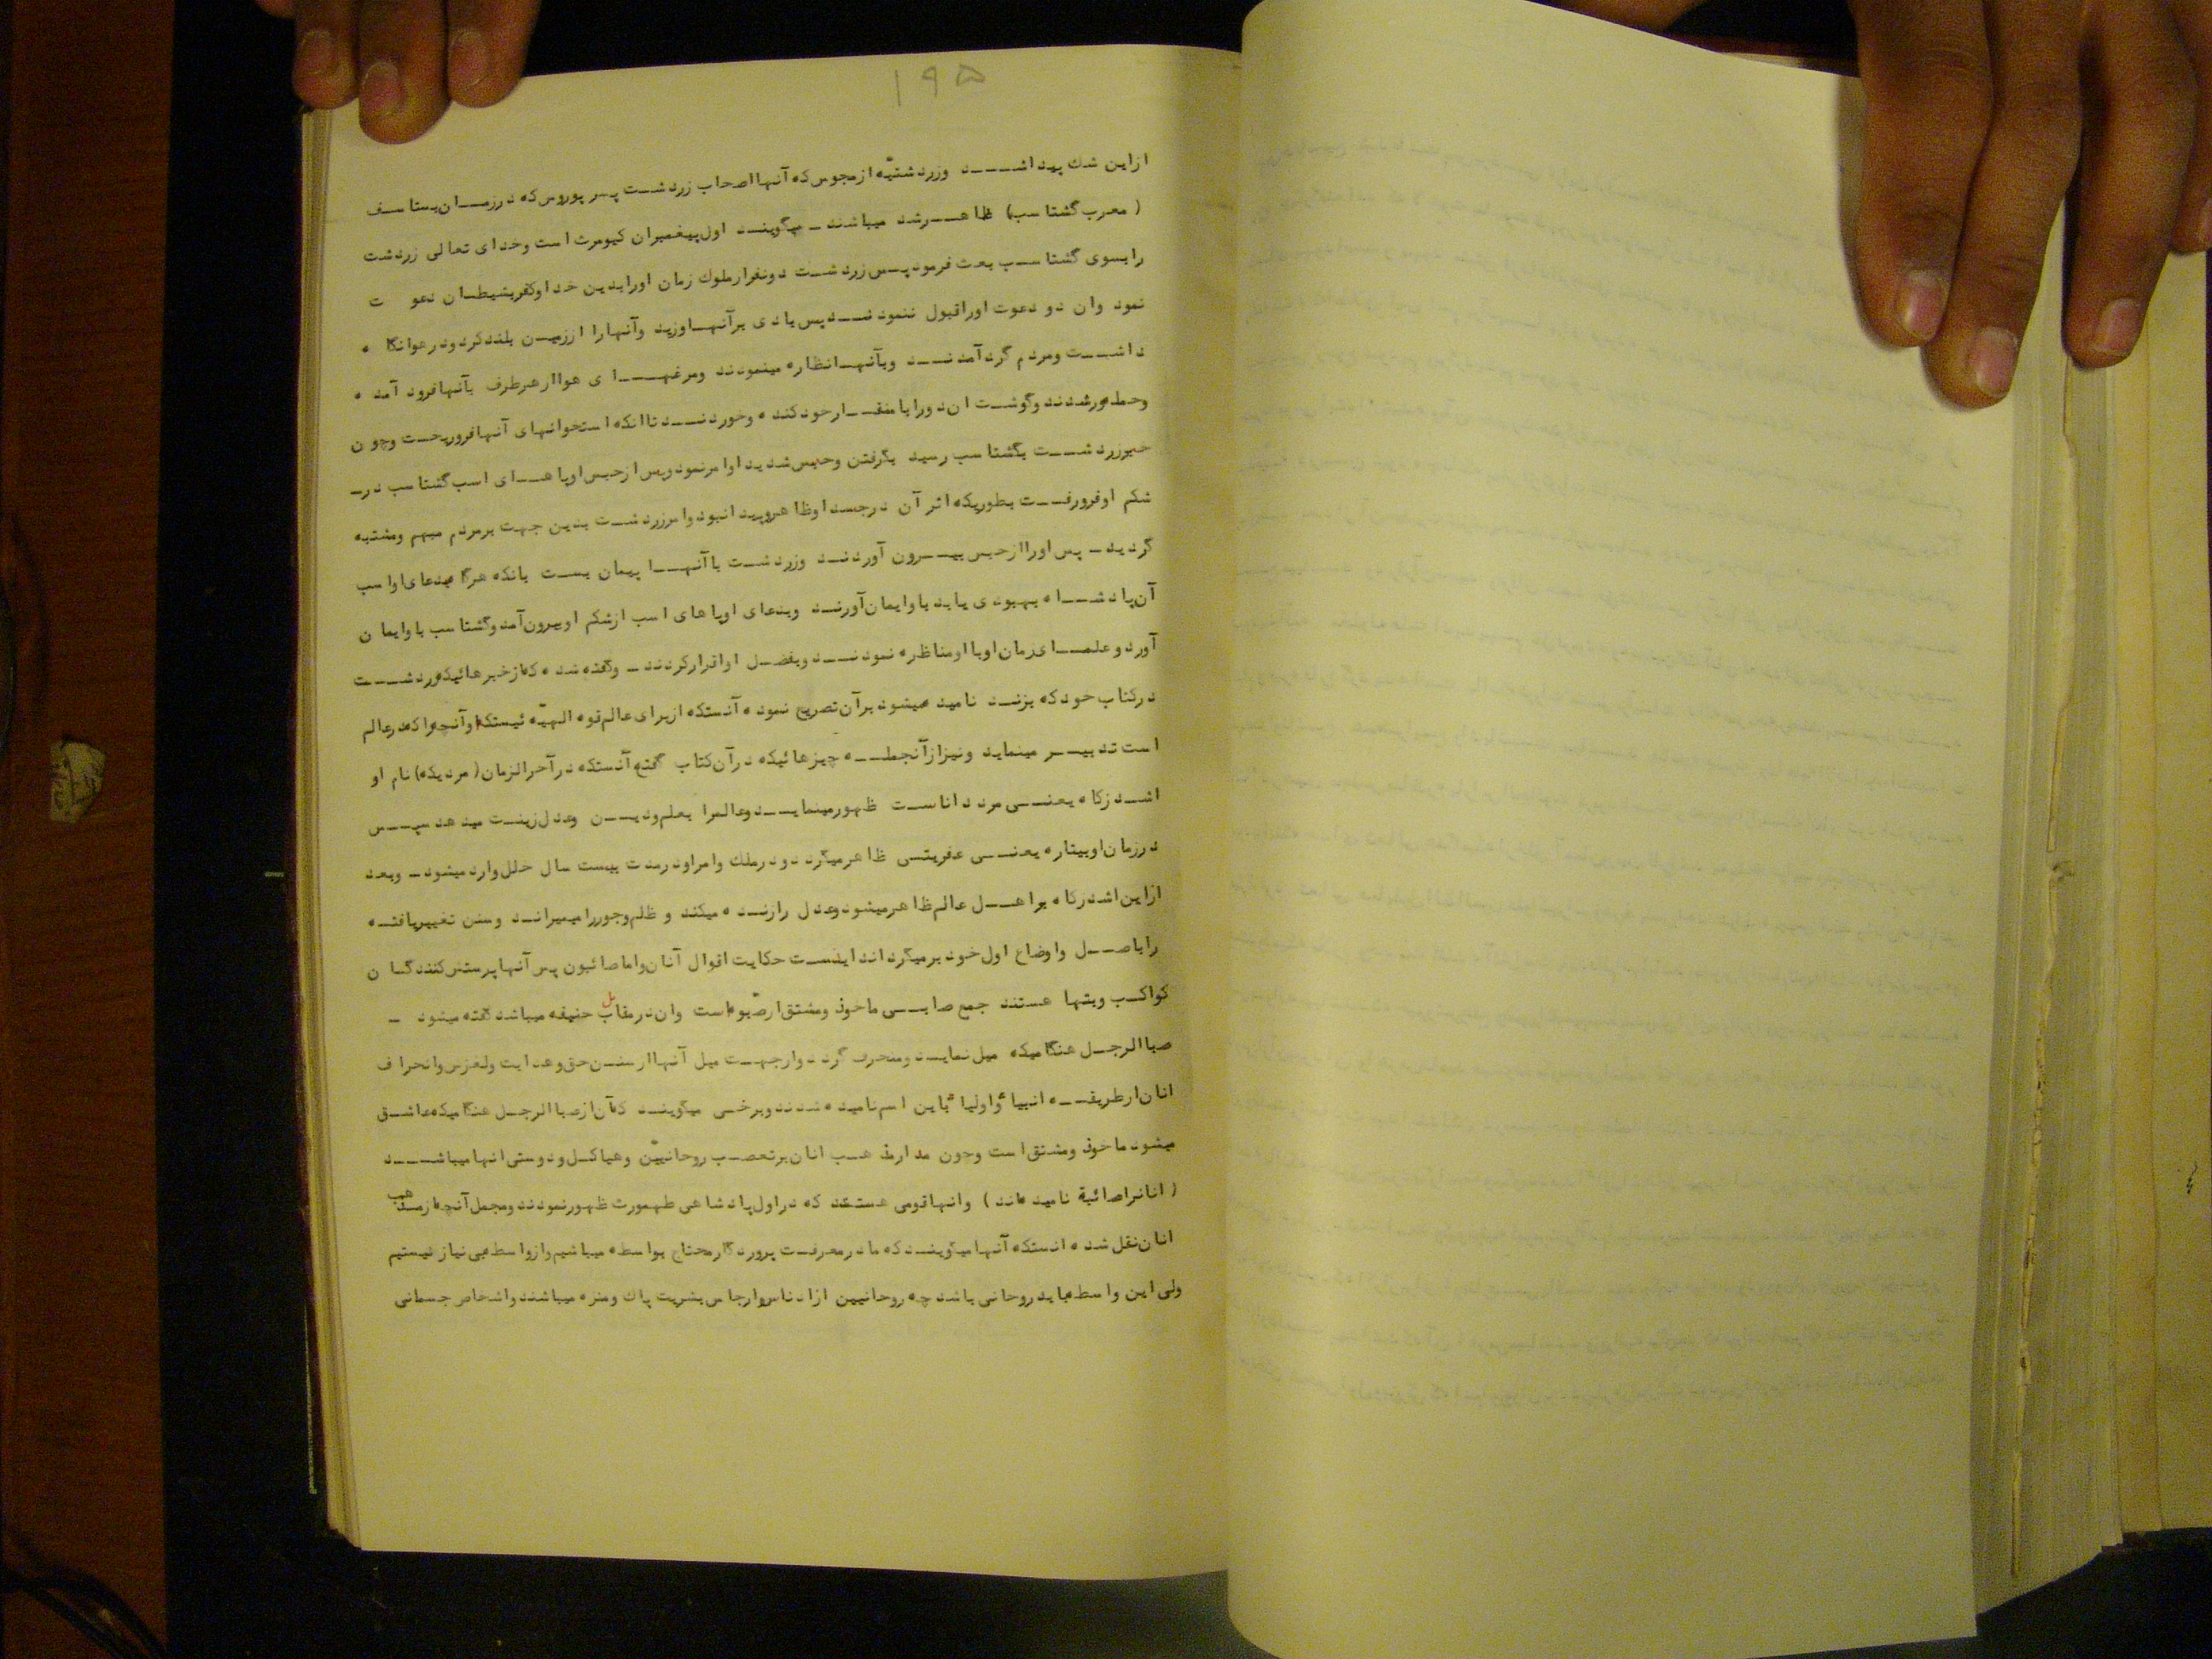 ۱۹۵
ازاین شك پیداشد وزردشتیّه ازمجوس که آنهااصحاب زردشت پسر پوروس که درزمان یستاسف
( معرب گشتاسب) ظاهرشد میباشند ـ میگویند اول پیغمبران کیومرث است وخدای تعالی زردشت
رابسوی گشتاسب بعث فرمود پس زردشت دونفرازملوك زمان اورابدین خدا وکفربشیطان دعوت
نمود وان دو دعوت اوراقبول ننمودند پس بادی برآنها وزید وآنهارا اززمین بلندکرد ودرهوانگاه
داشت ومردم گردآمدند وبآنها نظاره مینمودند ومرغهای هوااز هرطرف بآنهافرود آمده
وحمله‌ورشدند وگوشت ان دورابامنقارخودکنده وخوردند تاانکه استخوانهای آنهافروریخت وچون
خبرزردشت بگشتاسب رسید بگرفتن وحبس شدید اوامرنمود وپس ازحبس اوپاهای اسب گشتاسب در ـ
شکم اوفرورفت بطوریکه اثر آن درجسد اوظاهروپیدانبود وامرزردشت بدین جهت برمردم مبهم ومشتبه
گردید ـ پس اوراازحبس بیرون آوردند وزردشت باآنها پیمان بست بانکه هرگاه بدعای اواسب
آن پادشاه بهبودی یابد باوایمان آورند وبدعای اوپاهای اسب ازشکم اوبیرون آمد وگشتاسب باوایمان
آورد وعلمای زمان اوبااومناظره نمودند وبفضل اواقرارکردند ـ وگفته شده که ازخبرهائیکه زردشت
درکتاب خود که بزند نامیده میشود برآن تصریح نموده آنستکه ازبرای عالم قوه الهیّه ئیستکه اوآنچه راکه درعالم
است تدبیر مینماید ونیزازآنجمله چیزهائیکه درآن کتاب گفته آنستکه درآخرالزمان (مردیکه) نام او
اشدزکاه یعنی مرد داناست ظهورمینماید وعالمرا بعلم ودین وعدل زینت میدهد سپس
درزمان اوبیتاره یعنی عفریتی ظاهرمیگردد ودرملك وامراودرمدت بیست سال خلل وارد میشود ـ وبعد
ازاین اشدرکاه براهل عالم ظاهرمیشود وعدل رازنده میکند و ظلم وجوررامیمیراند وسنن تغییریافته
راباصل واوضاع اول خود برمیگرداند اینست حکایت اقوال آنان واماصائبون پس آنهاپرستش کنندگان
کواکب وبتها هستند جمع صابی ماخوذ ومشتق ازصبوه است وان درمقابل حنیفه میباشد گفته میشود ـ
صباالرجل هنگامیکه میل نماید ومنحرف گردد وازجهت میل آنهاازسنن حق وهدایت ولغزش وانحراف
انان ازطریقه انبیاء واولیاء باین اسم نامیده شدند وبرخی میگویند که آن ازصباالرجل هنگامیکه عاشق
میشود ماخوذ ومشتق است وچون مدارمذهب انان برتعصب روحانییّن وهیاکل ودوستی انهامیباشد
( انانراصائبة نامیده اند ) وانهاقومی هستند که دراول پادشاهی طهمورث ظهورنمودند ومجمل آنچه ازمذهب
انان نقل شده انستکه آنهامیگویند که مادرمعرفت پروردگارمحتاج بواسطه میباشیم وازواسطه بی نیازنیستیم
ولی این واسطه باید روحانی باشد چه روحانیین ازادناس وارجاس بشریت پاك ومنزه میباشند واشخاص جسمانی